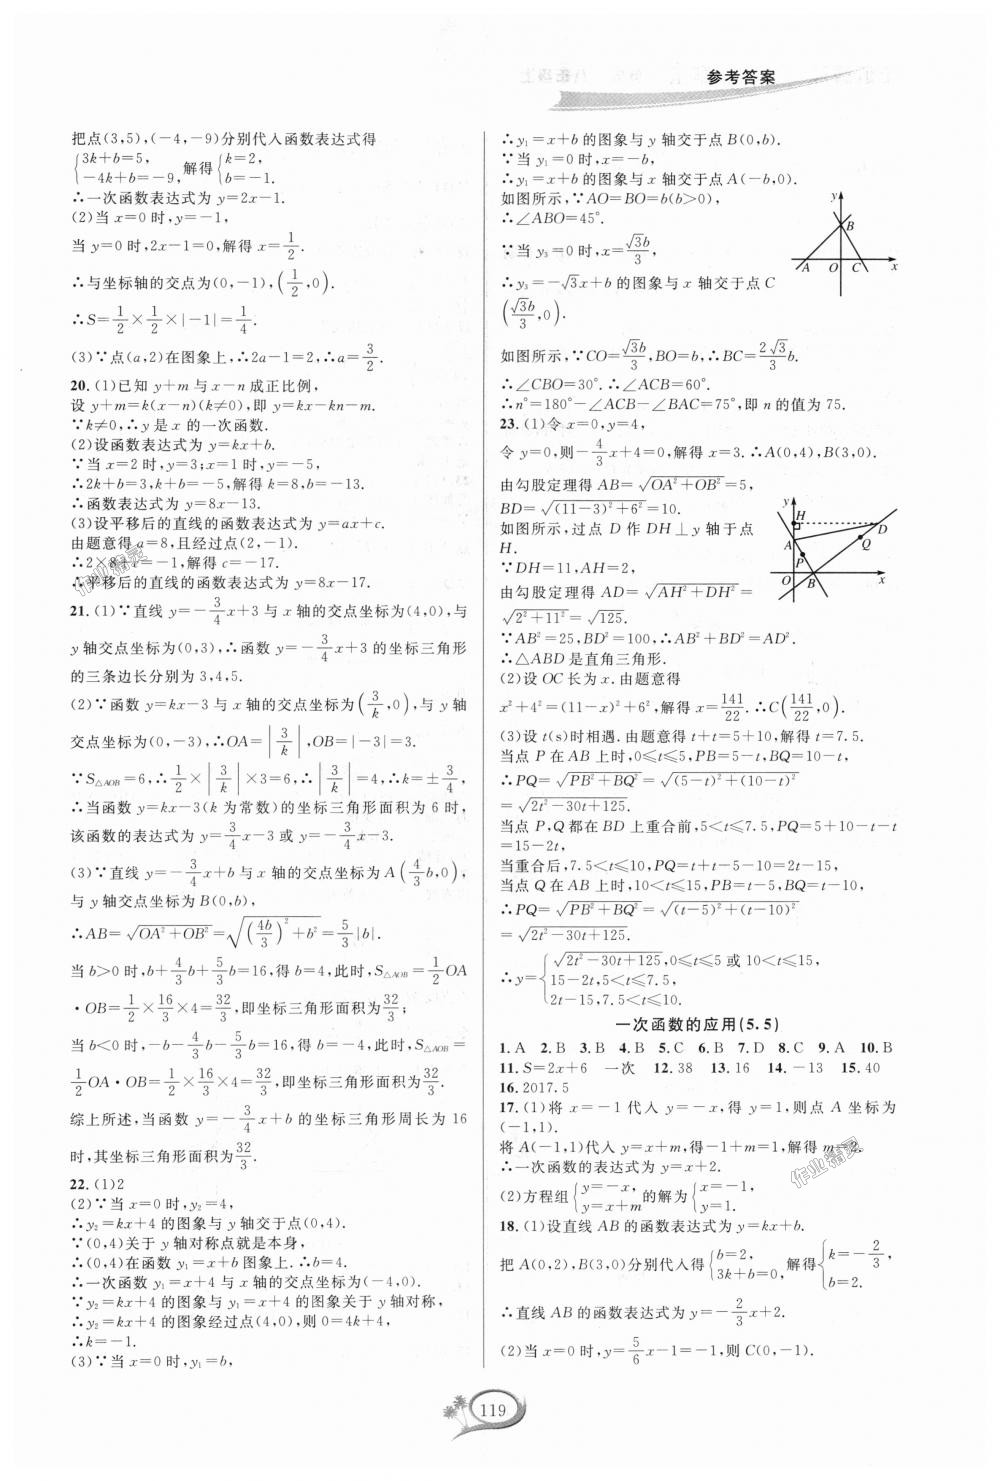 参考答案
把点(3,5),(-4,-9)分别代入函数表达式得
{3k+b=5, -4k+b=-9, 解得{k=2, b=-1.
∴一次函数表达式为 y=2x-1.
(2)当 x=0 时,y=-1,
当 y=0 时,2x-1=0,解得 x=1/2.
∴与坐标轴的交点为(0,-1),(1/2,0).
∴S=1/2×1/2×|-1|=1/4.
(3)∵点(a,2)在图象上,∴2a-1=2,∴a=3/2.
20.(1)已知 y+m 与 x-n 成正比例,
设 y+m=k(x-n)(k≠0),即 y=kx-kn-m.
∵k≠0,∴y 是 x 的一次函数.
(2)设函数表达式为 y=kx+b.
∵当 x=2 时,y=3;x=1 时,y=-5,
∴2k+b=3,k+b=-5,解得 k=8,b=-13.
∴函数表达式为 y=8x-13.
(3)设平移后的直线的函数表达式为 y=ax+c.
由题意得 a=8,且经过点(2,-1).
∴2×8+c=-1,解得 c=-17.
∴平移后的直线的函数表达式为 y=8x-17.
21.(1)∵直线 y=-3/4x+3 与 x 轴的交点坐标为(4,0),与
y 轴交点坐标为(0,3),∴函数 y=-3/4x+3 的坐标三角形
的三条边长分别为 3,4,5.
(2)∵函数 y=kx-3 与 x 轴的交点坐标为(3/k,0),与 y 轴
交点坐标为(0,-3),∴OA=|3/k|,OB=|-3|=3.
∵S△AOB=6,∴1/2×|3/k|×3=6,∴|3/k|=4,∴k=±3/4,
∴当函数 y=kx-3(k 为常数)的坐标三角形面积为 6 时,
该函数的表达式为 y=3/4x-3 或 y=-3/4x-3.
(3)∵直线 y=-3/4x+b 与 x 轴的交点坐标为 A(4/3b,0),
与 y 轴交点坐标为 B(0,b),
∴AB=√(OA²+OB²)=√((4b/3)²+b²)=5/3|b|.
当 b>0 时,b+4/3b+5/3b=16,得 b=4,此时,S△AOB=1/2OA
·OB=1/2×16/3×4=32/3,即坐标三角形面积为32/3.
当 b<0 时,-b-4/3b-5/3b=16,得 b=-4,此时,S△AOB=
1/2OA·OB=1/2×16/3×4=32/3,即坐标三角形面积为32/3.
综上所述,当函数 y=-3/4x+b 的坐标三角形周长为 16
时,其坐标三角形面积为32/3.
22.(1)2
(2)∵当 x=0 时,y₂=4,
∴y₂=kx+4 的图象与 y 轴交于点(0,4).
∵(0,4)关于 y 轴对称点就是本身,
∴(0,4)在函数 y₁=x+b 图象上.∴b=4.
∴一次函数 y₁=x+4 与 x 轴的交点坐标为(-4,0).
∵y₂=kx+4 的图象与 y₁=x+4 的图象关于 y 轴对称,
∴y₂=kx+4 的图象经过点(4,0),则 0=4k+4,
∴k=-1.
(3)∵当 x=0 时,y₁=b,
∴y₁=x+b 的图象与 y 轴交于点 B(0,b).
∵当 y₁=0 时,x=-b,
∴y₁=x+b 的图象与 x 轴交于点 A(-b,0).
如图所示,∵AO=BO=b(b>0),
∴∠ABO=45°.
∵当 y₃=0 时,x=√3b/3,
∴y₃=-√3x+b 的图象与 x 轴交于点 C
(√3b/3,0).
y
B
A O C x
如图所示,∵CO=√3b/3,BO=b,∴BC=2√3/3b.
∴∠CBO=30°.∴∠ACB=60°.
∴n°=180°-∠ACB-∠BAC=75°,即 n 的值为 75.
23.(1)令 x=0,y=4,
令 y=0,则-4/3x+4=0,解得 x=3.∴A(0,4),B(3,0).
由勾股定理得 AB=√(OA²+OB²)=5,
BD=√((11-3)²+6²)=10.
如图所示,过点 D 作 DH⊥y 轴于点
H.
∵DH=11,AH=2,
由勾股定理得 AD=√(AH²+DH²)=
√(2²+11²)=√125.
y
H
D
A
Q
P
O B x
∵AB²=25,BD²=100,∴AB²+BD²=AD².
∴△ABD是直角三角形.
(2)设 OC 长为 x.由题意得
x²+4²=(11-x)²+6²,解得 x=141/22.∴C(141/22,0).
(3)设 t(s)时相遇.由题意得 t+t=5+10,解得 t=7.5.
当点 P 在 AB 上时,0≤t≤5,PB=5-t,BQ=10-t,
∴PQ=√(PB²+BQ²)=√((5-t)²+(10-t)²)
=√(2t²-30t+125).
当点 P,Q 都在 BD 上重合前,5<t≤7.5,PQ=5+10-t-t
=15-2t,
当重合后,7.5<t≤10,PQ=t+t-5-10=2t-15,
当点 Q 在 AB 上时,10<t≤15,PB=t-5,BQ=t-10,
∴PQ=√(PB²+BQ²)=√((t-5)²+(t-10)²)
=√(2t²-30t+125).
∴y={√(2t²-30t+125),0≤t≤5 或 10<t≤15,
15-2t,5<t≤7.5,
2t-15,7.5<t≤10.
一次函数的应用(5.5)
1.A 2.B 3.B 4.B 5.C 6.B 7.D 8.C 9.A 10.B
11.S=2x+6 一次 12.38 13.16 14.-13 15.40
16.2017.5
17.(1)将 x=-1 代入 y=-x,得 y=1,则点 A 坐标为
(-1,1).
将 A(-1,1)代入 y=x+m,得-1+m=1,解得 m=2.
∴一次函数的表达式为 y=x+2.
(2)方程组{y=-x, y=x+m 的解为{x=-1, y=1.
18.(1)设直线 AB 的函数表达式为 y=kx+b.
把 A(0,2),B(3,0)分别代入得{b=2, 3k+b=0, 解得{k=-2/3, b=2.
∴直线 AB 的函数表达式为 y=-2/3x+2.
(2)当 x=0 时,y=5/6x-1=-1,则 C(0,-1).
119
作业精灵
作业精灵